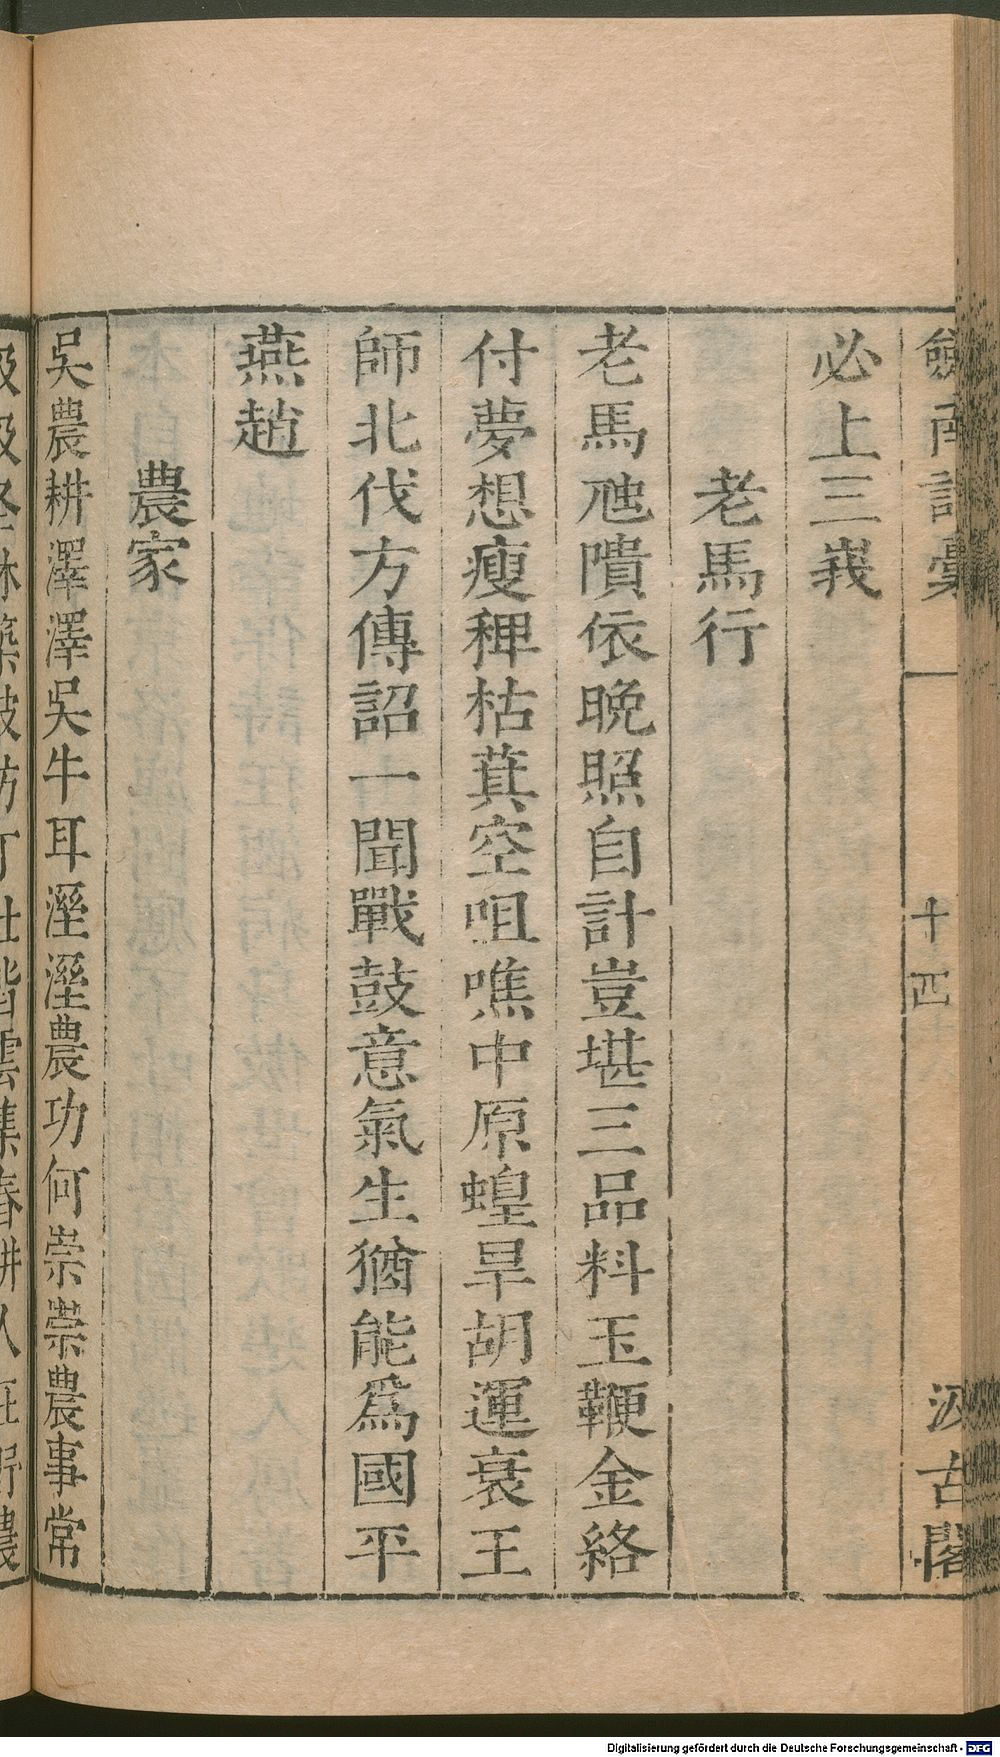 劍南詩稾
十四
汲古閣
必上三峩
老馬行
老馬虺隤依晚照自計豈堪三品料玉鞭金絡
付夢想瘦稗枯萁空咀噍中原蝗旱胡運衰王
師北伐方傳詔一聞戰鼓意氣生猶能爲國平
燕趙
農家
吳農耕澤澤吳牛耳溼溼農功何崇崇農事常
Digitalisierung gefördert durch die Deutsche Forschungsgemeinschaft - DFG